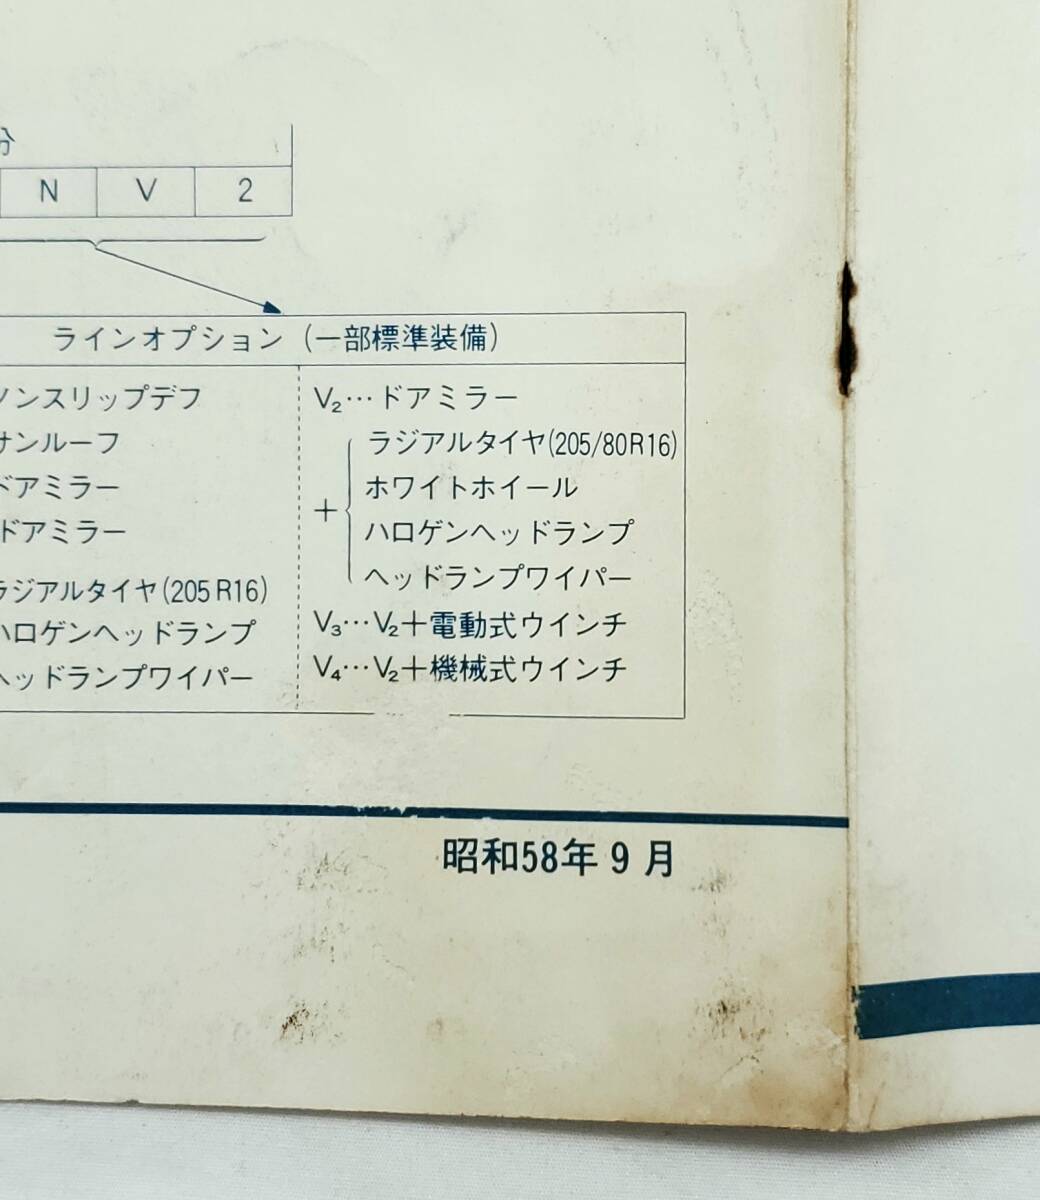 分
N V 2
ラインオプション (一部標準装備)
ノンスリップデフ
サンルーフ
ドアミラー
ドアミラー
ラジアルタイヤ(205R16)
ハロゲンヘッドランプ
ヘッドランプワイパー
V₂…ドアミラー
ラジアルタイヤ(205/80R16)
ホワイトホイール
+
ハロゲンヘッドランプ
ヘッドランプワイパー
V₃…V₂+電動式ウインチ
V₄…V₂+機械式ウインチ
昭和58年9月